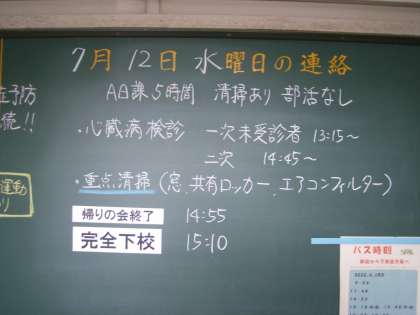 7月12日 水曜日の連絡
A日課5時間 清掃あり 部活なし
・心臓病検診 一次未受診者 13:15～
二次 14:45～
・重点清掃(窓、共有ロッカー、エアコンフィルター)
帰りの会終了 14:55
完全下校 15:10
バス時刻